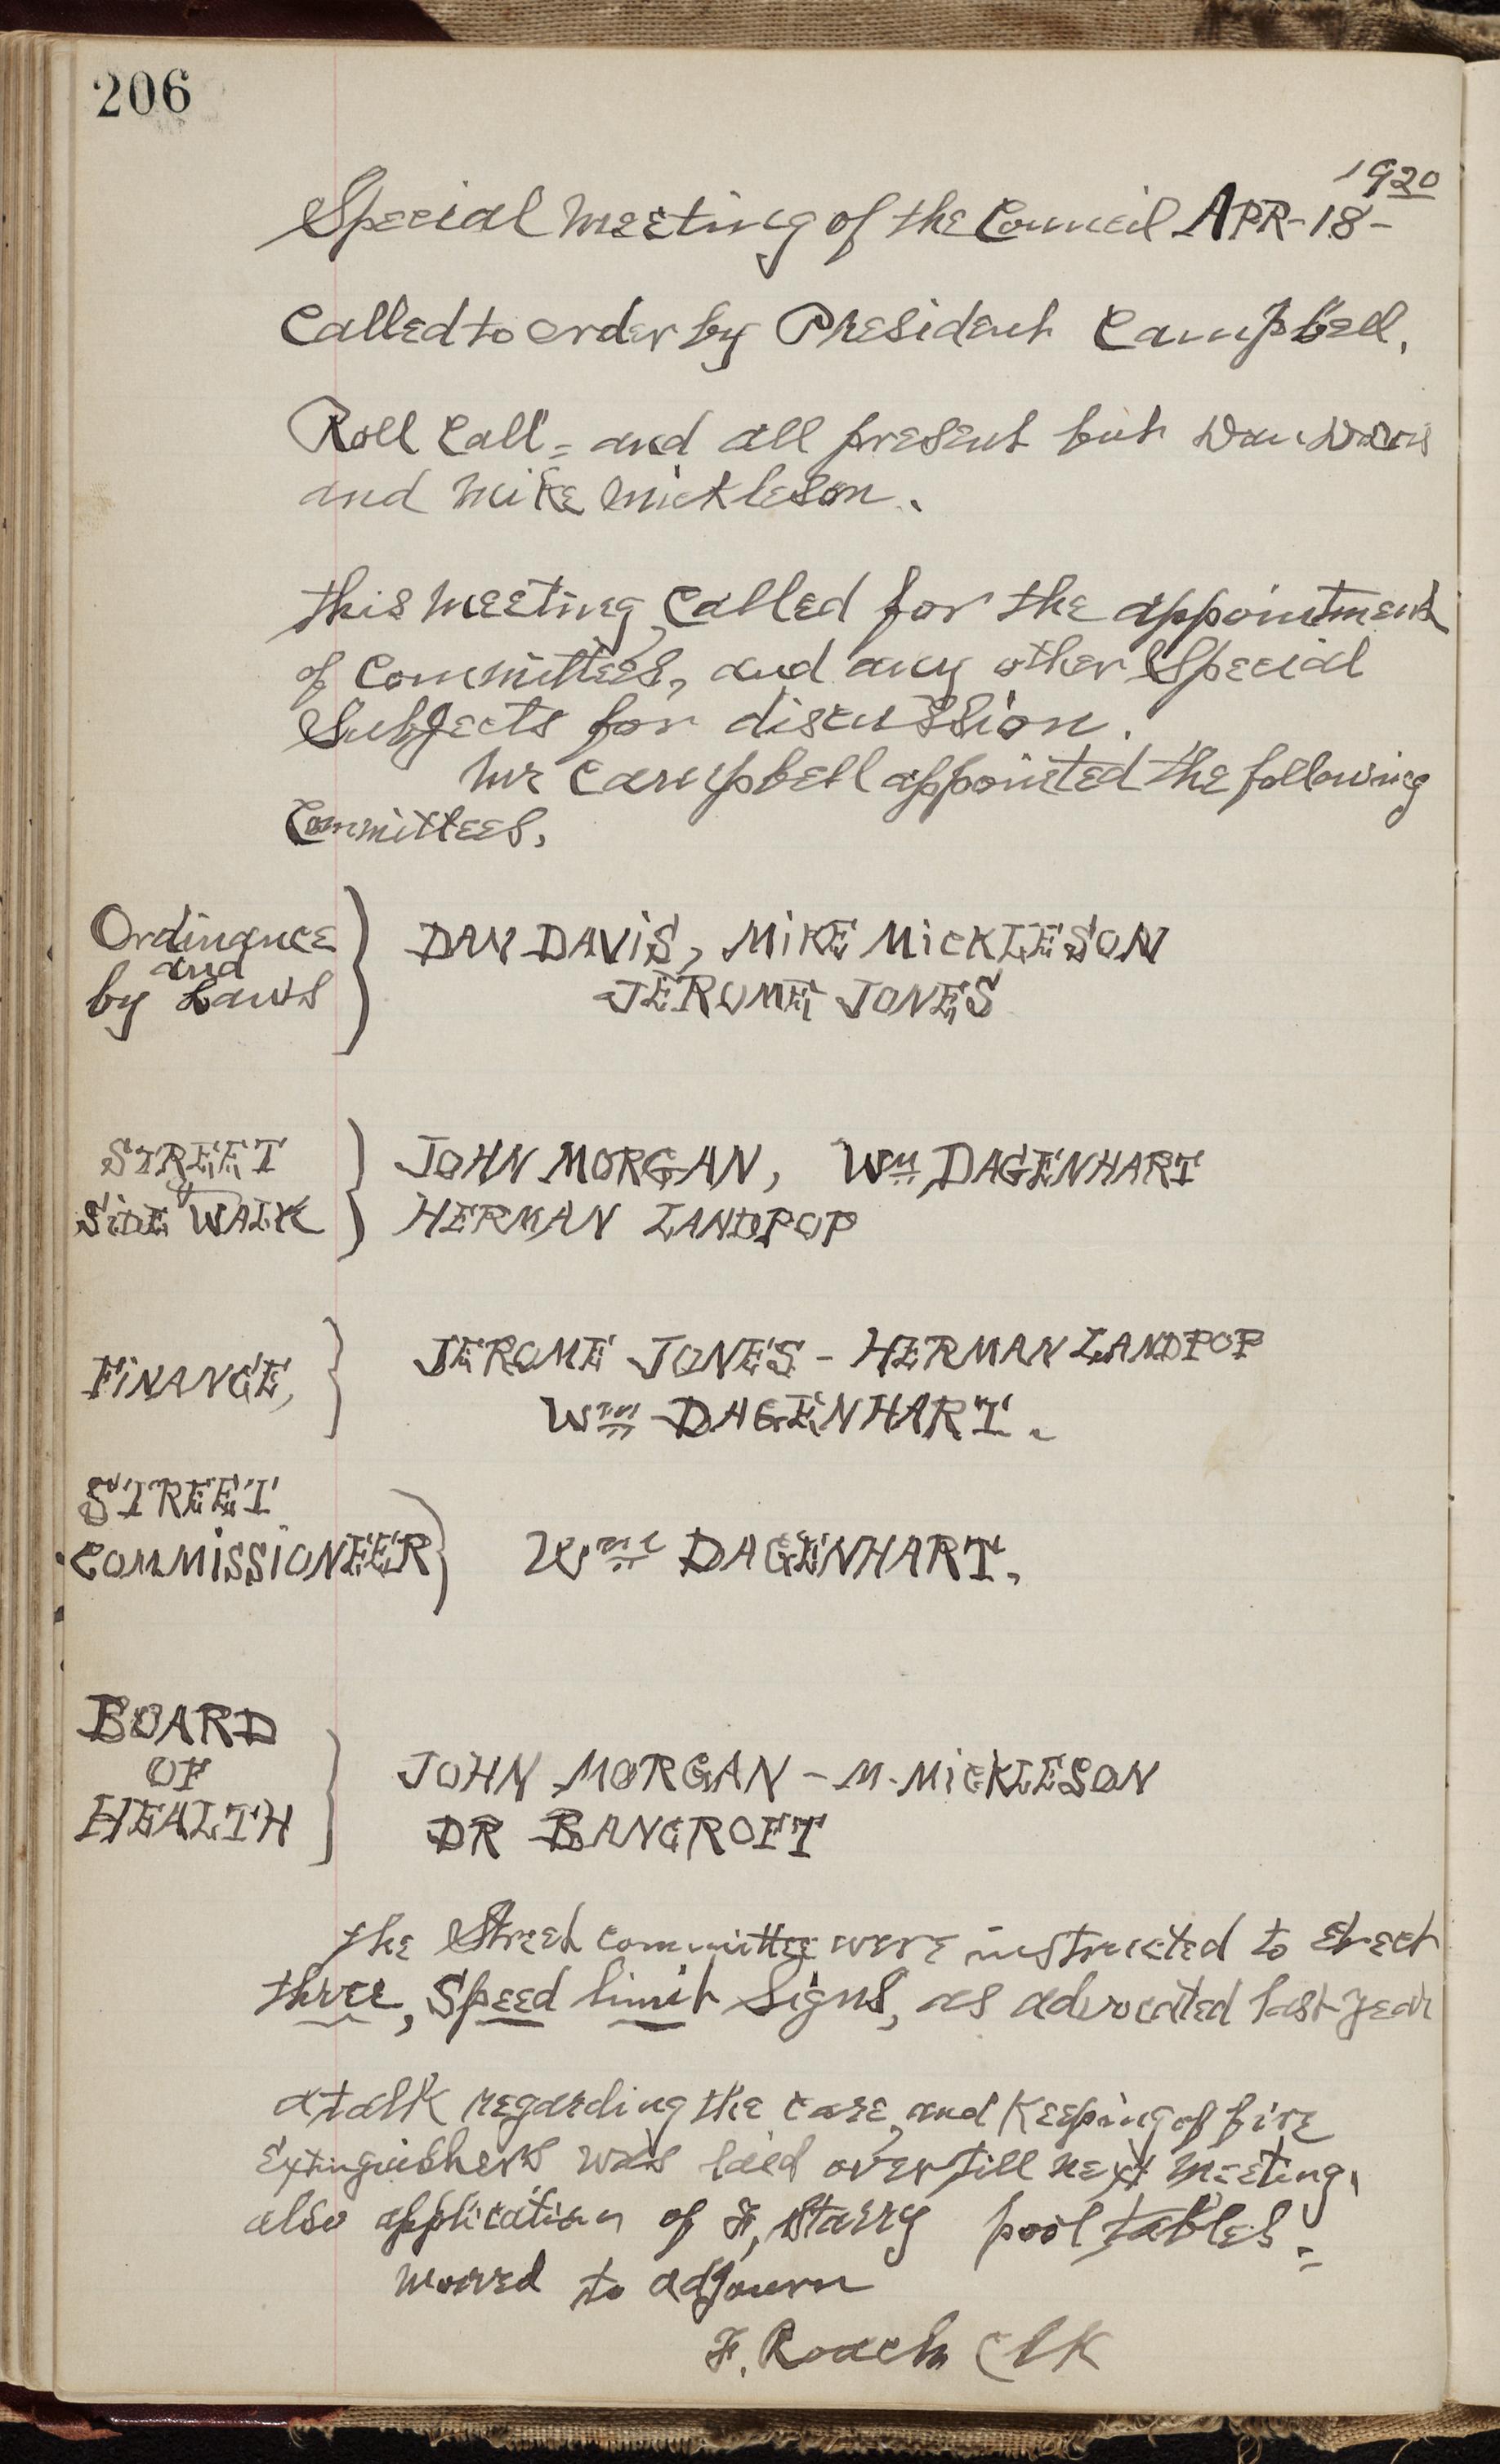 206
1920
Special Meeting of the Council APR-18-
Called to order by President Campbell,
Roll Call = and all present but Dan Davis
and Mike Mickleson.
this meeting, called for the appointment
of Committees, and any other Special
Subjects for discussion.
Mr Campbell appointed the following
Committees,
Ordinance
and
by Laws
DAN DAVIS, MIKE MICKLESON
JEROME JONES
STREET
&
SIDE WALK
JOHN MORGAN, Wm DAGENHART
HERMAN LANDPOP
FINANCE,
JEROME JONES - HERMAN LANDPOP
Wm DAGENHART.
STREET
COMMISSIONEER
Wm DAGENHART.
BOARD
OF
HEALTH
JOHN MORGAN - M. MICKLESON
DR BANCROFT
the Street committee were instructed to erect
three, Speed limit Signs, as advocated last year
a talk regarding the care, and Keeping of fire
Extinguishers was laid over till next meeting,
also application of F, Starry pool tables =
moved to adjourn
F. Roach Clk